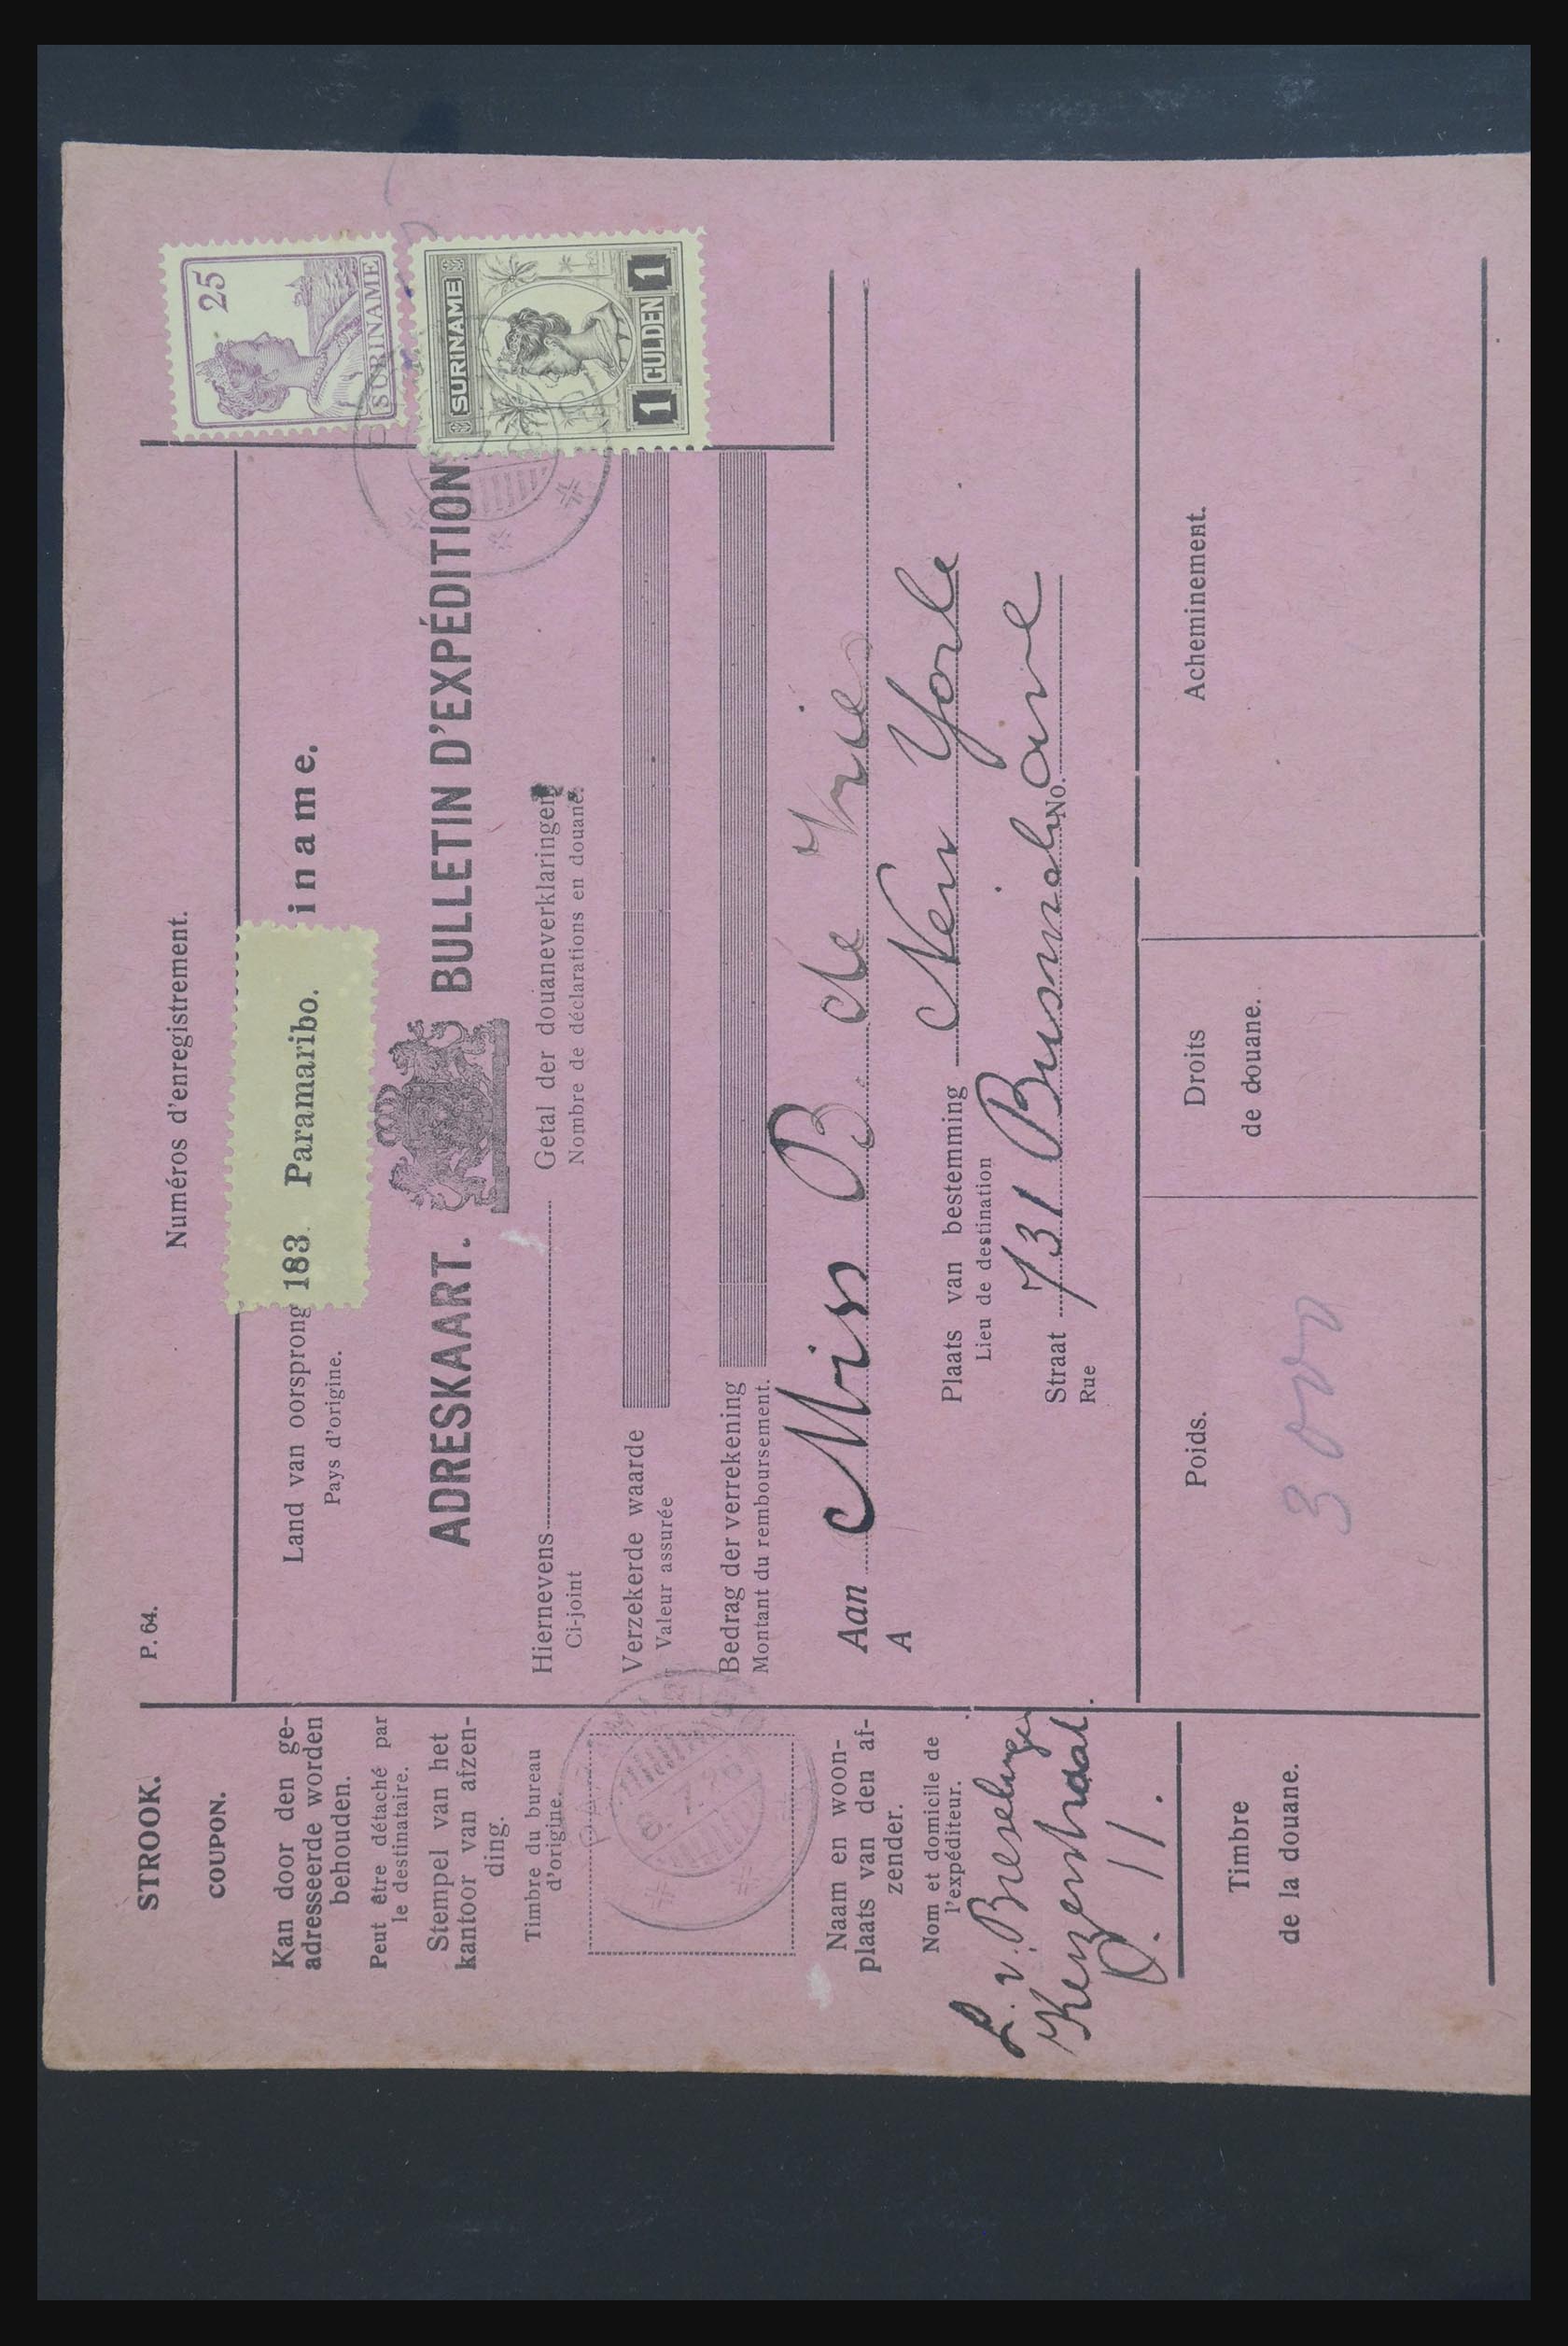 STROOK.
COUPON.
Kan door den ge-
adresseerde worden
behouden.
Peut être détaché par
le destinataire.
Stempel van het
kantoor van afzen-
ding.
Timbre du bureau
d'origine.
8. 7. 26
Naam en woon-
plaats van den af-
zender.
Nom et domicile de
l'expéditeur.
L. v.
D. 11.
Timbre
de la douane.
P. 64.
Numéros d'enregistrement.
Land van oorsprong
iname.
Pays d'origine.
183. Paramaribo.
25
SURINAME
SURINAME
1 GULDEN 1
ADRESKAART. BULLETIN D'EXPÉDITION
Hiernevens Getal der douaneverklaringen
Ci-joint Nombre de déclarations en douane.
Verzekerde waarde
Valeur assurée
Bedrag der verrekening
Montant du remboursement.
Aan Miss B. de Vries
A
Plaats van bestemming New York
Lieu de destination
Straat 731 No. ave
Rue
Poids.
3000
Droits
de douane.
Acheminement.